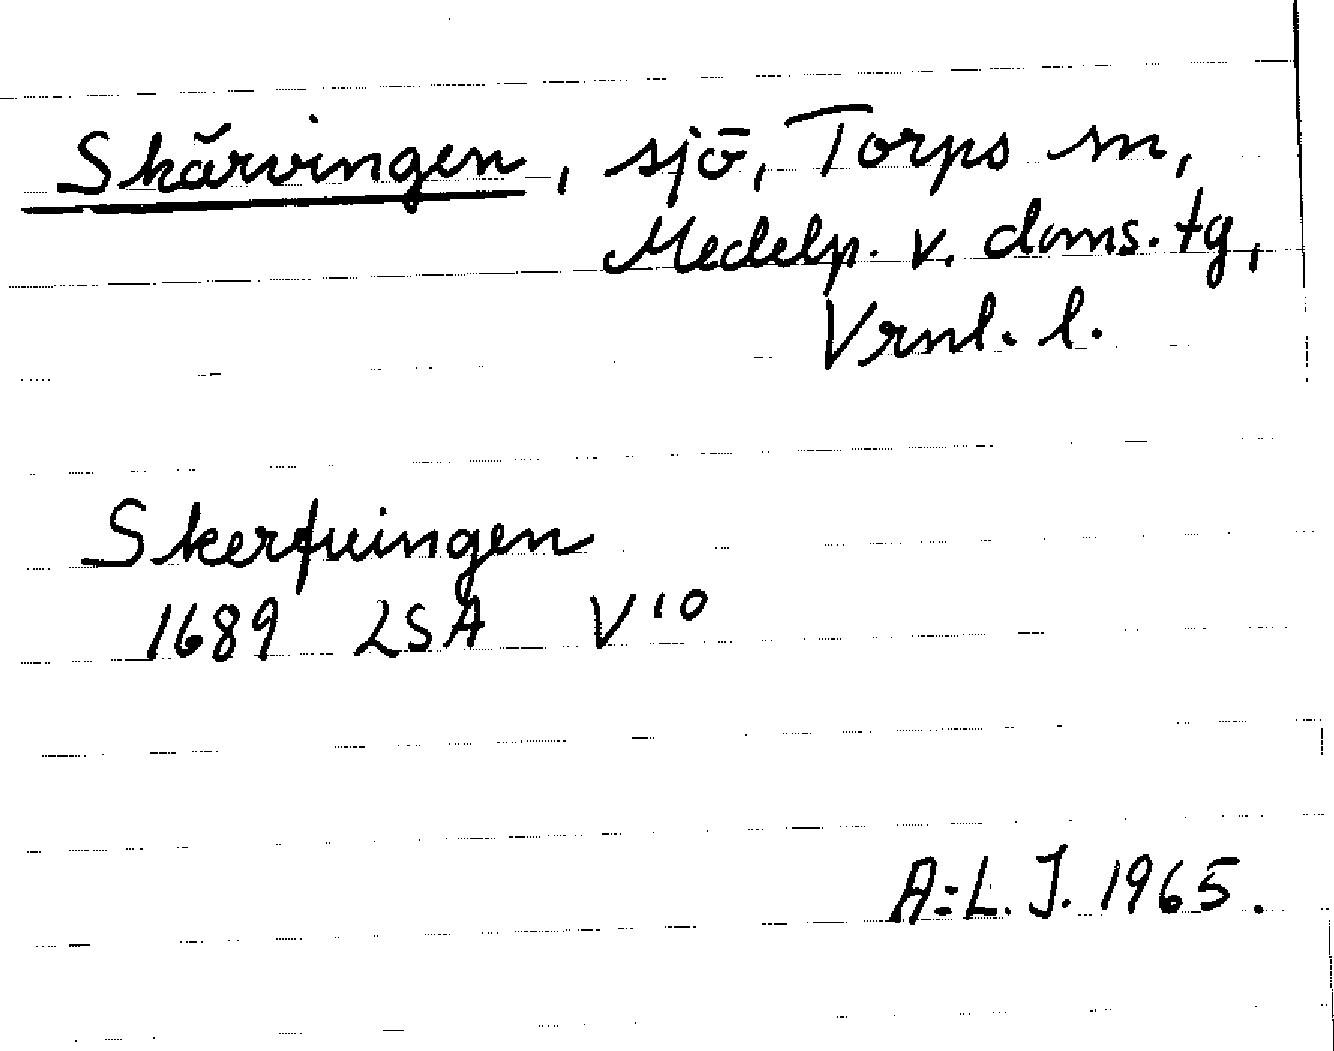 Skärvingen, sjö, Torps sn,
Medelp. v. doms. tg,
Vrnl. l.
Skerfuingen
1689 LSA V 10
A:L. J. 1965.